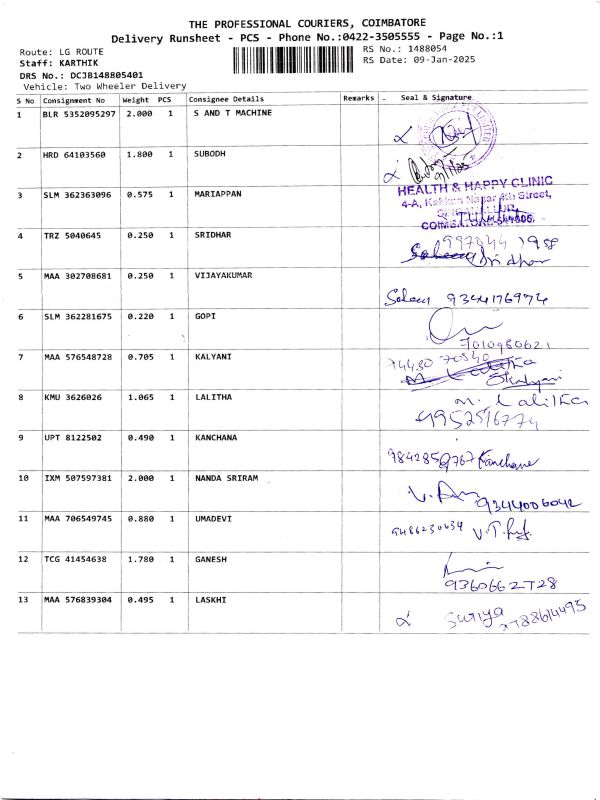 THE PROFESSIONAL COURIERS, COIMBATORE
Delivery Runsheet - PCS - Phone No.:0422-3505555 - Page No.:1
Route: LG ROUTE
RS No.: 1488054
Staff: KARTHIK
RS Date: 09-Jan-2025
DRS No.: DCJB148805401
Vehicle: Two Wheeler Delivery
S No Consignment No Weight PCS Consignee Details Remarks - Seal & Signature
1 BLR 5352095297 2.000 1 S AND T MACHINE
2 HRD 64103560 1.800 1 SUBODH
HEALTH & HAPPY CLINIC
3 SLM 362363096 0.575 1 MARIAPPAN
4-A, Street,
4 TRZ 5040645 0.250 1 SRIDHAR
Sridhar
5 MAA 302708681 0.250 1 VIJAYAKUMAR
9344176974
6 SLM 362281675 0.220 1 GOPI
7010980621
7 MAA 576548728 0.705 1 KALYANI
74430 70540
S Kalyani
8 KMU 3626026 1.065 1 LALITHA
M. Lalitha
9952596774
9 UPT 8122502 0.490 1 KANCHANA
9842859767 Kanchana
10 IXM 507597381 2.000 1 NANDA SRIRAM
9344006042
11 MAA 706549745 0.880 1 UMADEVI
9486230634
12 TCG 41454638 1.780 1 GANESH
9360662728
13 MAA 576839304 0.495 1 LASKHI
Suriya